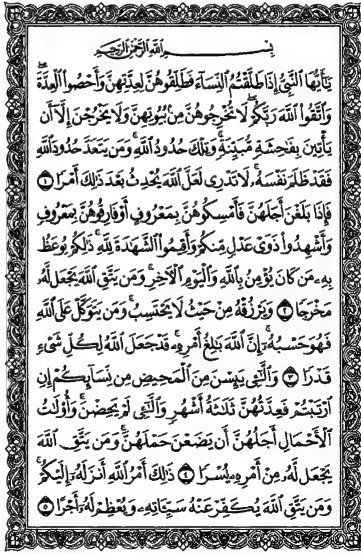 بِسْمِ اللَّهِ الرَّحْمَٰنِ الرَّحِيمِ
يَٰٓأَيُّهَا ٱلنَّبِىُّ إِذَا طَلَّقْتُمُ ٱلنِّسَآءَ فَطَلِّقُوهُنَّ لِعِدَّتِهِنَّ وَأَحْصُوا۟ ٱلْعِدَّةَ
وَٱتَّقُوا۟ ٱللَّهَ رَبَّكُمْ لَا تُخْرِجُوهُنَّ مِنۢ بُيُوتِهِنَّ وَلَا يَخْرُجْنَ إِلَّآ أَن
يَأْتِينَ بِفَٰحِشَةٍ مُّبَيِّنَةٍ وَتِلْكَ حُدُودُ ٱللَّهِ وَمَن يَتَعَدَّ حُدُودَ ٱللَّهِ
فَقَدْ ظَلَمَ نَفْسَهُۥ لَا تَدْرِى لَعَلَّ ٱللَّهَ يُحْدِثُ بَعْدَ ذَٰلِكَ أَمْرًا ١
فَإِذَا بَلَغْنَ أَجَلَهُنَّ فَأَمْسِكُوهُنَّ بِمَعْرُوفٍ أَوْ فَارِقُوهُنَّ بِمَعْرُوفٍ
وَأَشْهِدُوا۟ ذَوَىْ عَدْلٍ مِّنكُمْ وَأَقِيمُوا۟ ٱلشَّهَٰدَةَ لِلَّهِ ذَٰلِكُمْ يُوعَظُ
بِهِۦ مَن كَانَ يُؤْمِنُ بِٱللَّهِ وَٱلْيَوْمِ ٱلْءَاخِرِ وَمَن يَتَّقِ ٱللَّهَ يَجْعَل لَّهُۥ
مَخْرَجًا ٢ وَيَرْزُقْهُ مِنْ حَيْثُ لَا يَحْتَسِبُ وَمَن يَتَوَكَّلْ عَلَى ٱللَّهِ
فَهُوَ حَسْبُهُۥٓ إِنَّ ٱللَّهَ بَٰلِغُ أَمْرِهِۦ قَدْ جَعَلَ ٱللَّهُ لِكُلِّ شَىْءٍ
قَدْرًا ٣ وَٱلَّٰٓـِٔى يَئِسْنَ مِنَ ٱلْمَحِيضِ مِن نِّسَآئِكُمْ إِنِ
ٱرْتَبْتُمْ فَعِدَّتُهُنَّ ثَلَٰثَةُ أَشْهُرٍ وَٱلَّٰٓـِٔى لَمْ يَحِضْنَ وَأُو۟لَٰتُ
ٱلْأَحْمَالِ أَجَلُهُنَّ أَن يَضَعْنَ حَمْلَهُنَّ وَمَن يَتَّقِ ٱللَّهَ
يَجْعَل لَّهُۥ مِنْ أَمْرِهِۦ يُسْرًا ٤ ذَٰلِكَ أَمْرُ ٱللَّهِ أَنزَلَهُۥٓ إِلَيْكُمْ
وَمَن يَتَّقِ ٱللَّهَ يُكَفِّرْ عَنْهُ سَيِّـَٔاتِهِۦ وَيُعْظِمْ لَهُۥٓ أَجْرًا ٥